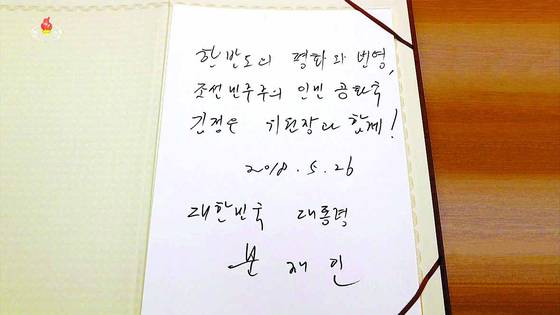 한반도의 평화와 번영,
조선민주주의 인민 공화국
김정은 위원장과 함께!
2018. 5. 26
대한민국 대통령
문재인